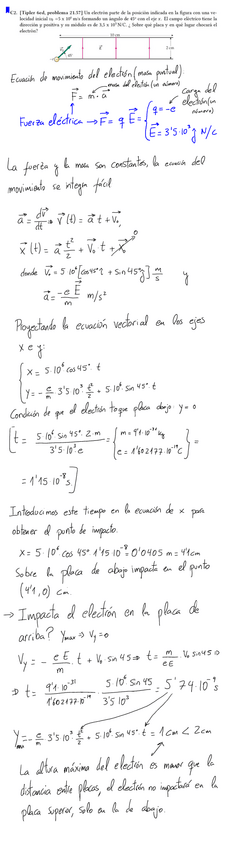 C2. [Tipler 6ed, problema 21.57] Un electrón parte de la posición indicada en la figura con una ve-
locidad inicial v₀ =5 x 10⁶ m/s formando un ángulo de 45° con el eje x. El campo eléctrico tiene la
dirección y positiva y su módulo es de 3,5 x 10³N/C. ¿ Sobre qué placa y en qué lugar chocará el
electrón?
10 cm
2 cm
45°
Ecuación de movimiento del electrón (masa puntual):
F = m·a
masa del electrón (un número)
Carga del
electrón (un
número)
Fuerza eléctrica → F = q E = { q = -e
E = 3'5·10³ j N/C
La fuerza y la masa son constantes, la ecuación del
movimiento se integra fácil
a = dv/dt → v(t) = a t + v₀,
x(t) = a t²/2 + v₀ t + x₀
donde v₀ = 5·10⁶ [cos45° i + sin45° j] m/s y
a = -e E/m m/s²
Proyectando la ecuación vectorial en los ejes
x e y:
x = 5·10⁶ cos45° t
y = - e/m 3'5 10³ t²/2 + 5·10⁶ sin 45° t
Condición de que el electrón toque placa abajo: y = 0
[t = 5·10⁶ sin 45° 2·m / 3'5·10³ e = { m = 9'1·10⁻³¹ kg
e = 1'602177·10⁻¹⁹ C } =
= 1'15·10⁻⁸ s]
Introducimos este tiempo en la ecuación de x para
obtener el punto de impacto.
x = 5·10⁶ cos 45° 1'15 10⁻⁸ = 0'0405 m = 4'1 cm
Sobre la placa de abajo impacta en el punto
(4'1, 0) cm.
→ Impacta el electrón en la placa de
arriba? Ymax → Vy = 0
Vy = - eE/m t + V₀ sin 45 ⇒ t = m/eE V₀ sin45 ⇒
⇒ t = 9'1·10⁻³¹/1'602177·10⁻¹⁹ · 5·10⁶ sin 45/3'5 10³ = 5'74·10⁻⁹ s
Ymax = - e/m 3'5 10³ t²/2 + 5·10⁶ sin 45° t = 1 cm < 2 cm
La altura máxima del electrón es menor que la
distancia entre placas, el electrón no impactará en la
placa superior, solo en la de abajo.